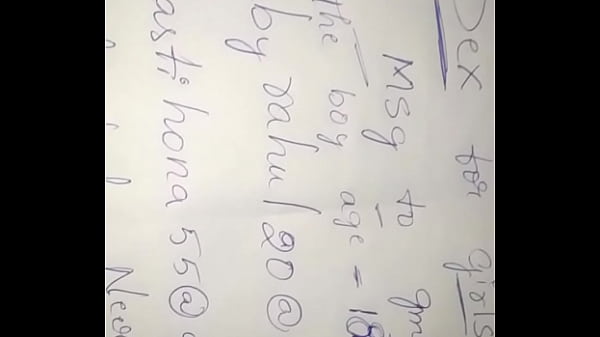 Sex for girls
msg to gm
the boy age = 18
by rahul 20@
asti hona 55@